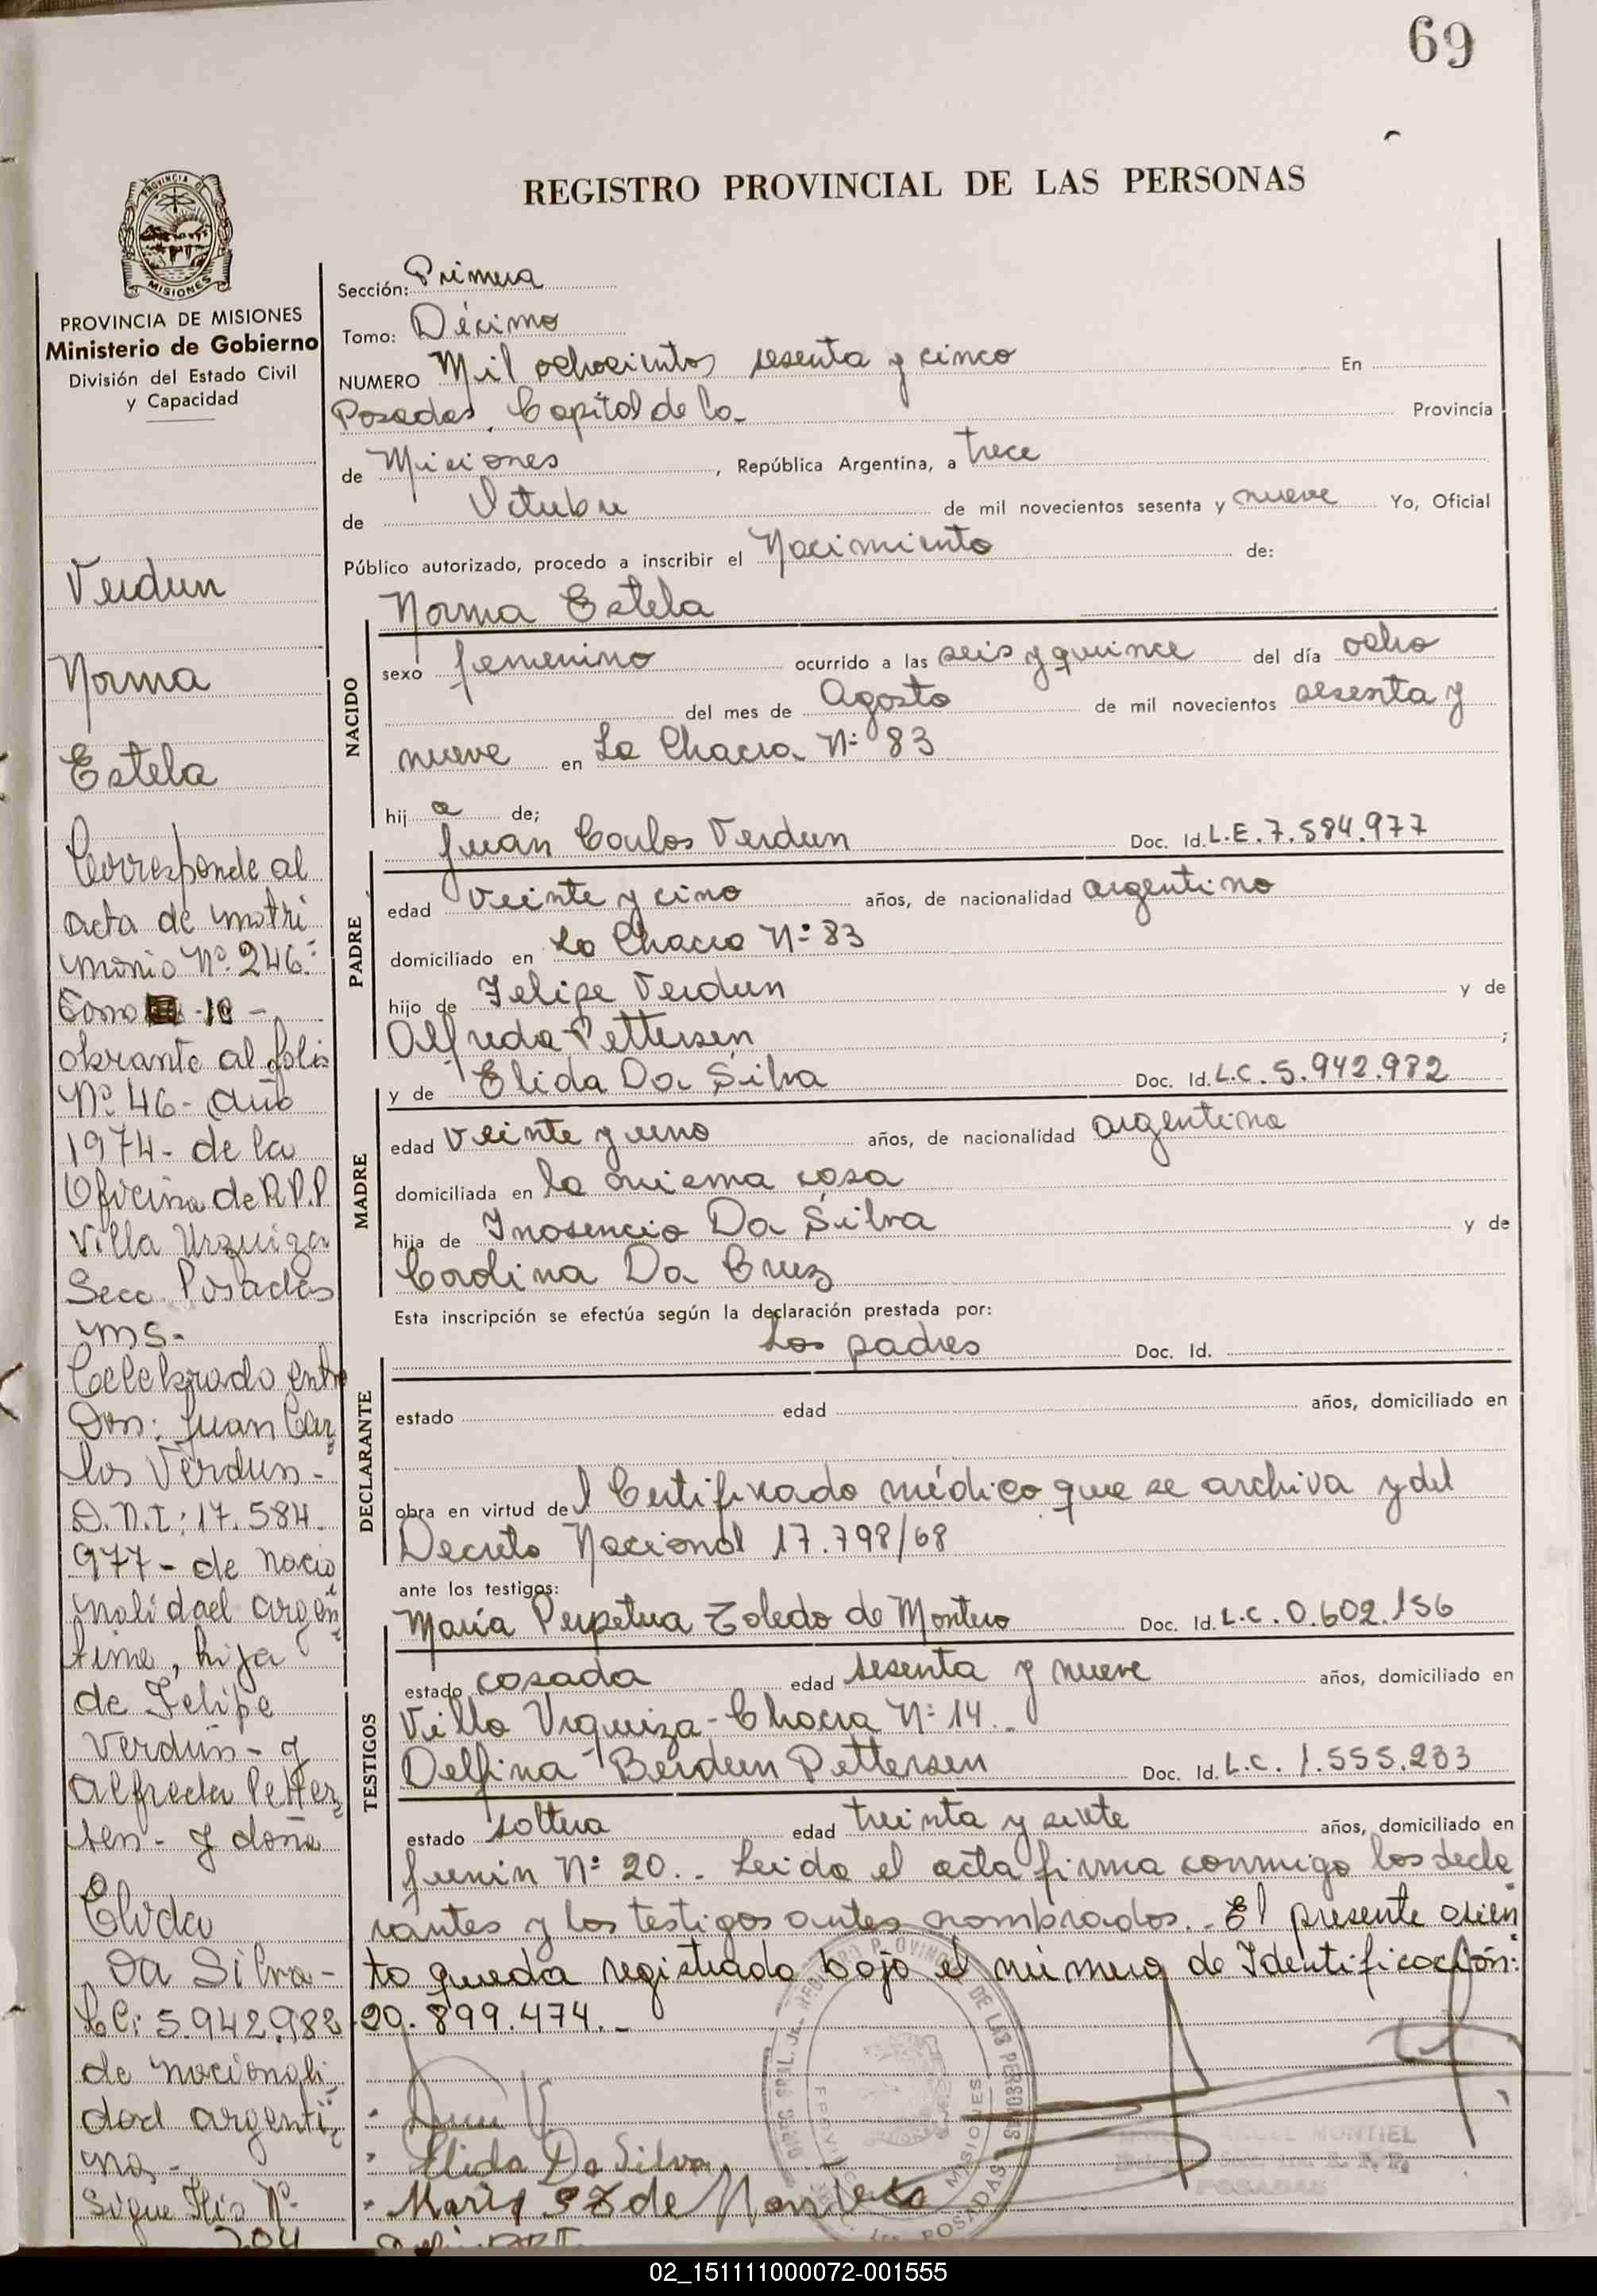 69
REGISTRO PROVINCIAL DE LAS PERSONAS
PROVINCIA DE
MISIONES
PROVINCIA DE MISIONES
Ministerio de Gobierno
División del Estado Civil
y Capacidad
Verdun
Norma
Estela
Corresponde al
acta de matri
monio Nº 246.
Tomo -1º-
obrante al folio
Nº 46- año
1974- de la
Oficina de R.P.P
Villa Urquiza
Secc. Posadas
ms.
Celebrado entre
Don: Juan Car
los Verdun-
D.N.I: 17.584.
977- de nacio
nalidad argen
tina, hija
de Felipe
Verdún- y
Alfreda Petter
sen- y doña
Elida
Da Silva-
LC: 5.942.982
de nacionali
dad argenti
na-
Sigue Flio Nº
204
Sección: Primera
Tomo: Décimo
NUMERO Mil ochocientos sesenta y cinco En
Posadas, Capital de la Provincia
de Misiones, República Argentina, a trece
de Octubre de mil novecientos sesenta y nueve Yo, Oficial
Público autorizado, procedo a inscribir el Nacimiento de:
Norma Estela
NACIDO
sexo femenino ocurrido a las seis y quince del día ocho
del mes de Agosto de mil novecientos sesenta y
nueve en La Chacra Nº 83
hij a de;
Juan Carlos Verdun Doc. Id. L.E. 7.584.977
PADRE
edad veinte y cinco años, de nacionalidad argentino
domiciliado en La Chacra Nº 83
hijo de Felipe Verdun y de
Alfreda Pettersen ;
y de Elida Da Silva Doc. Id. L.C. 5.942.982
MADRE
edad veinte y uno años, de nacionalidad argentina
domiciliada en la misma casa
hija de Inosencio Da Silva y de
Carolina Da Cruz
Esta inscripción se efectúa según la declaración prestada por:
Los padres Doc. Id.
DECLARANTE
estado edad años, domiciliado en
obra en virtud del Certificado médico que se archiva y del
Decreto Nacional 17.798/68
ante los testigos:
María Perpetua Toledo de Montero Doc. Id. L.C. 0.602.156
TESTIGOS
estado casada edad sesenta y nueve años, domiciliado en
Villa Urquiza - Chacra Nº 14.-
Delfina Berdun Pettersen Doc. Id. L.C. 1.555.233
estado soltera edad treinta y siete años, domiciliado en
Junin Nº 20.- Leida el acta firma conmigo los decla
rantes y los testigos antes nombrados.- El presente asien
to queda registrado bajo el número de Identificación:
20.899.474.-
Elida Da Silva
Maria
ANGEL MONTIEL
POSADAS
02_151111000072-001555